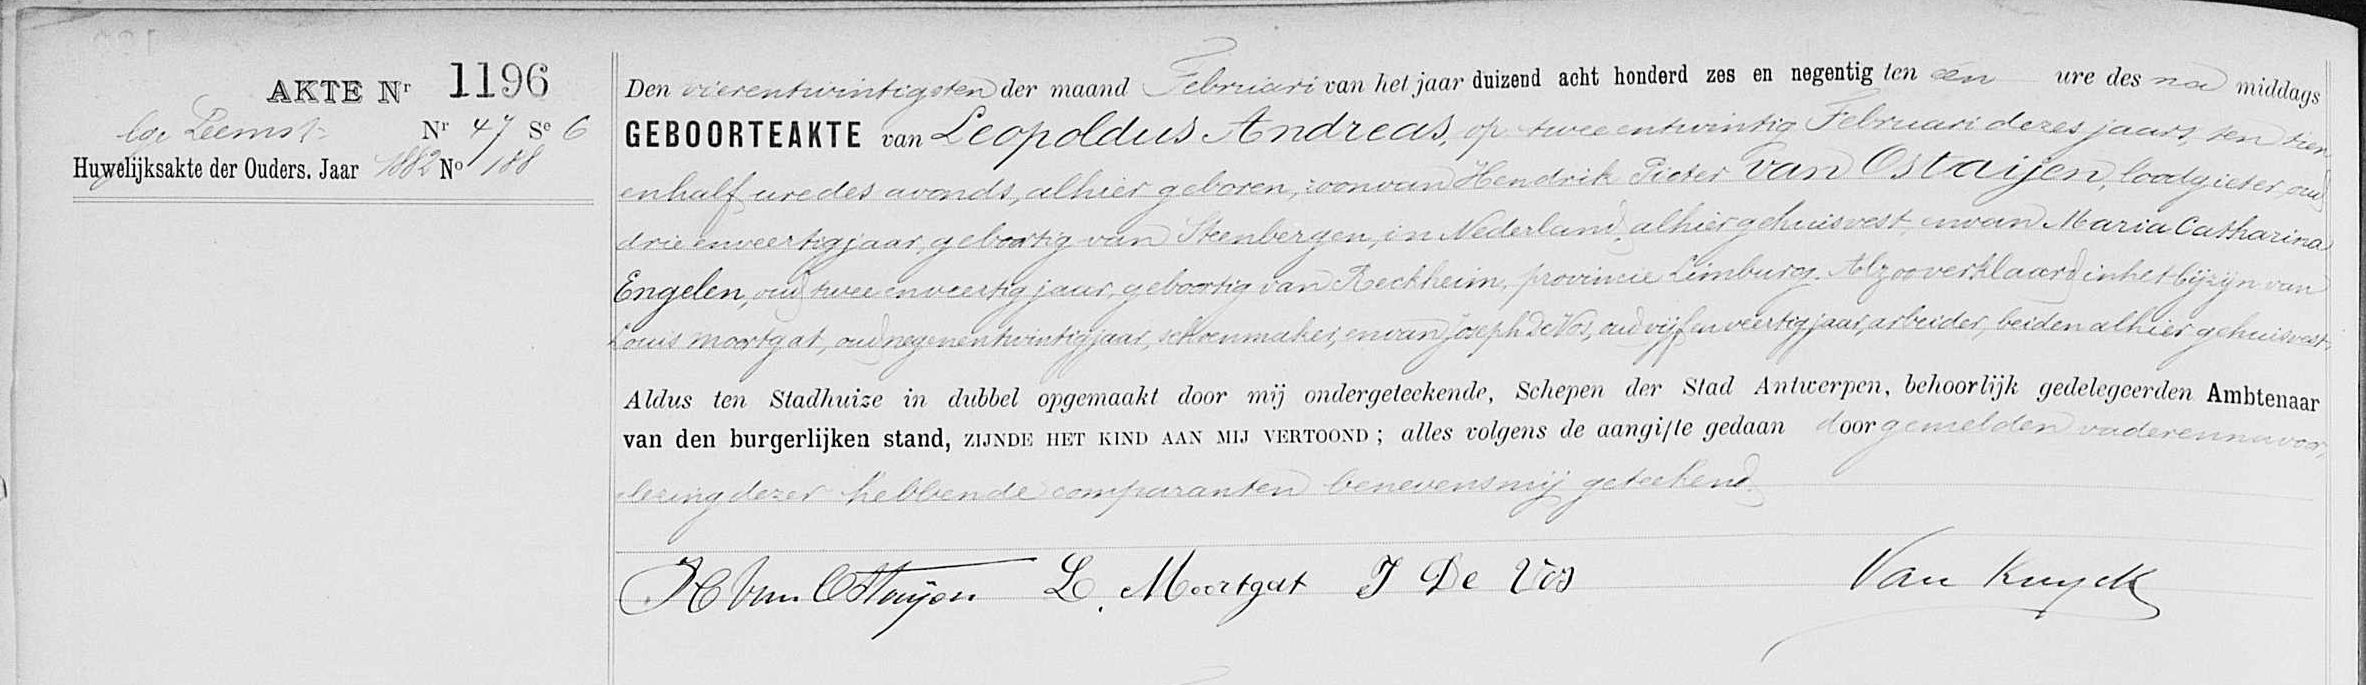 AKTE Nr 1196
lge Leemst. Nr 47 Se 6
Huwelijksakte der Ouders. Jaar 1882 No 188
Den vierentwintigsten der maand Februari van het jaar duizend acht honderd zes en negentig ten een ure des na middags
GEBOORTEAKTE van Leopoldus Andreas, op tweeentwintig Februari dezes jaars, ten tien
enhalf ure des avonds, alhier geboren, zoon van Hendrik Pieter Van Ostaijen, loodgieter, oud
drieenveertig jaar, geboortig van Steenbergen, in Nederland, alhier gehuisvest, en van Maria Catharina
Engelen, oud tweeenveertig jaar, geboortig van Reckheim, provincie Limburg. Alzoo verklaard in het bijzijn van
Louis Moortgat, oud negenentwintig jaar, schoenmaker, en van Joseph De Vos, oud vijfenveertig jaar, arbeider, beiden alhier gehuisvest.
Aldus ten Stadhuize in dubbel opgemaakt door mij ondergeteekende, Schepen der Stad Antwerpen, behoorlijk gedelegeerden Ambtenaar
van den burgerlijken stand, ZIJNDE HET KIND AAN MIJ VERTOOND; alles volgens de aangifte gedaan door gemelden vader en na voor-
lezing dezer hebbende comparanten benevens mij geteekend.
H Van Ostaijen L. Moortgat J De Vos Van Kuyck